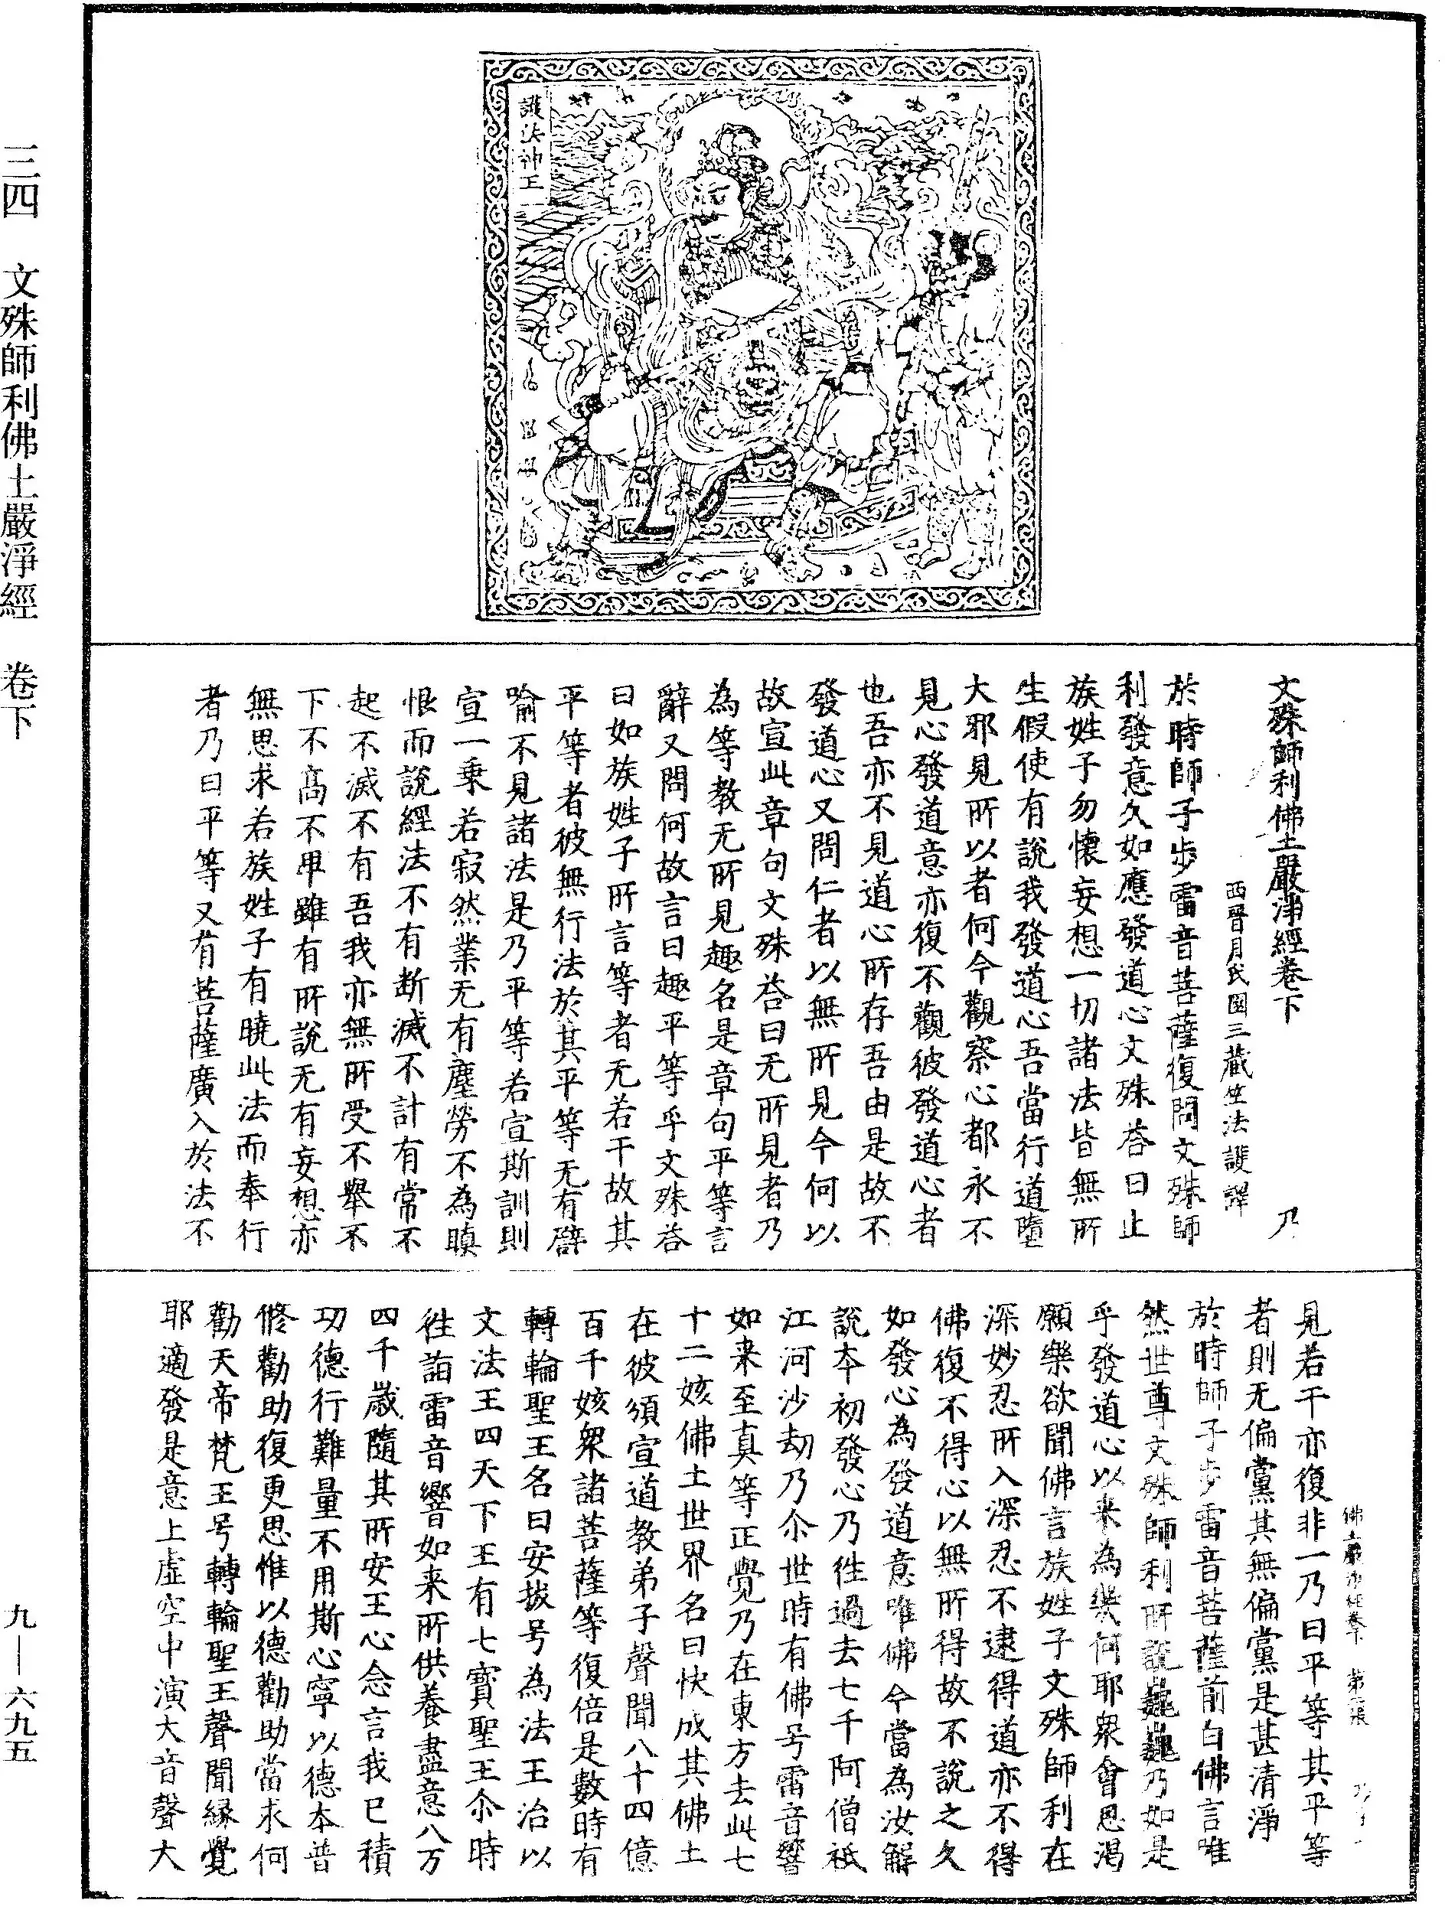 三四　文殊師利佛土嚴淨經　卷下
九—六九五
護法神王
文殊師利佛土嚴淨經卷下　乃
西晉月氏國三藏竺法護譯
於時師子步雷音菩薩復問文殊師
利發意久如應發道心文殊荅曰止
族姓子勿懷妄想一切諸法皆無所
生假使有說我發道心吾當行道墮
大邪見所以者何今觀察心都永不
見心發道意亦復不觀彼發道心者
也吾亦不見道心所存吾由是故不
發道心又問仁者以無所見今何以
故宣此章句文殊荅曰无所見者乃
為等教无所見趣名是章句平等言
辭又問何故言曰趣平等乎文殊荅
曰如族姓子所言等者无若干故其
平等者彼無行法於其平等无有辟
喻不見諸法是乃平等若宣斯訓則
宣一乗若寂然業无有塵勞不為瞋
恨而說經法不有断滅不計有常不
起不滅不有吾我亦無所受不舉不
下不髙不卑雖有所說无有妄想亦
無思求若族姓子有曉此法而奉行
者乃曰平等又有菩薩廣入於法不
見若干亦復非一乃曰平等其平等
者則无偏黨其無偏黨是甚清淨
於時師子步雷音菩薩前白佛言唯
然世尊文殊師利所說巍巍乃如是
乎發道心以来為幾何耶衆會思渴
願樂欲聞佛言族姓子文殊師利在
深妙忍所入深忍不逮得道亦不得
佛復不得心以無所得故不說之久
如發心為發道意唯佛今當為汝解
說本初發心乃往過去七千阿僧祇
江河沙劫乃尒世時有佛号雷音響
如来至真等正覺乃在東方去此七
十二姟佛土世界名曰快成其佛土
在彼頒宣道教弟子聲聞八十四億
百千姟衆諸菩薩等復倍是數時有
轉輪聖王名曰安拔号為法王治以
文法王四天下王有七寳聖王尒時
徃詣雷音響如来所供養盡意八万
四千歲隨其所安王心念言我已積
功德行難量不用斯心寧以德本普
脩勸助復更思惟以德勸助當求何
勸天帝梵王号轉輪聖王聲聞縁覺
耶適發是意上虛空中演大音聲大
佛土嚴淨經卷下　第二張